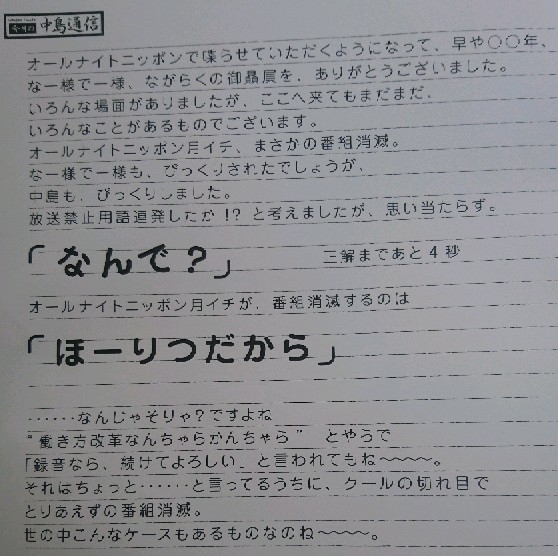 今月の 中島通信
オールナイトニッポンで喋らせていただくようになって、早や○○年、
な一様で一様、ながらくの御贔屓を、ありがとうございました。
いろんな場面がありましたが、ここへ来てもまだまだ、
いろんなことがあるものでございます。
オールナイトニッポン月イチ、まさかの番組消滅。
な一様で一様も、びっくりされたでしょうが、
中島も、びっくりしました。
放送禁止用語連発したか!?と考えましたが、思い当たらず。
「なんで?」 正解まであと4秒
オールナイトニッポン月イチが、番組消滅するのは
「ほーりつだから」
……なんじゃそりゃ?ですよね
“働き方改革なんちゃらかんちゃら” とやらで
「録音なら、続けてよろしい」と言われてもね〜〜〜〜。
それはちょっと……と言ってるうちに、クールの切れ目で
とりあえずの番組消滅。
世の中こんなケースもあるものなのね〜〜〜〜。